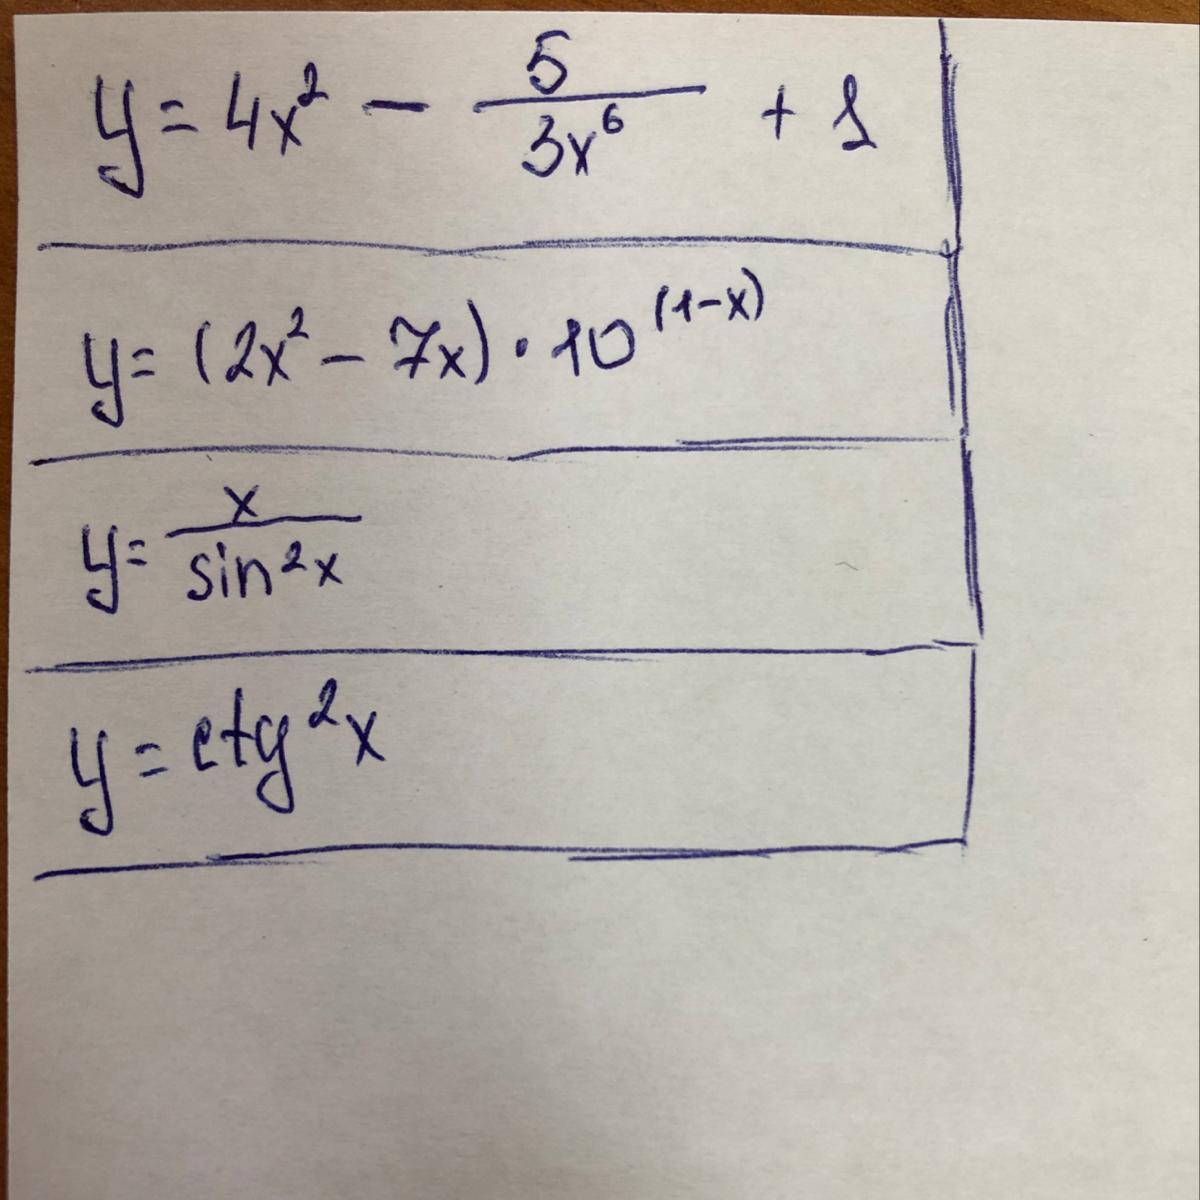 y = 4x² − 5/(3x⁶) + 1
y = (2x² − 7x) · 10^(1−x)
y = x/sin²x
y = ctg²x